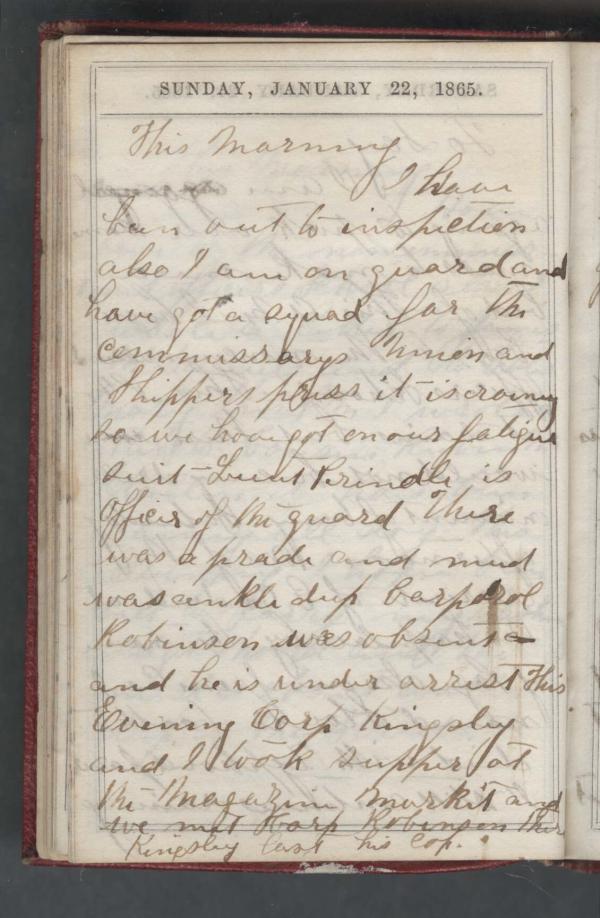 SUNDAY, JANUARY 22, 1865.
This Morning
I have
ben out to inspection
also I am on guard and
have got a squad for the
commissarys Union and
Shippers press it is
so we have got on our fatigue
suit - Leut Prindle is
officer of the guard There
was a prade and mud
was ankle deep Corporol
Robinson was absent
and he is under arrest This
Evening Corp Kingsley
and I took supper at
the Magazine Markit and
we met Corp Robinson ther
Kingsley last his cop.